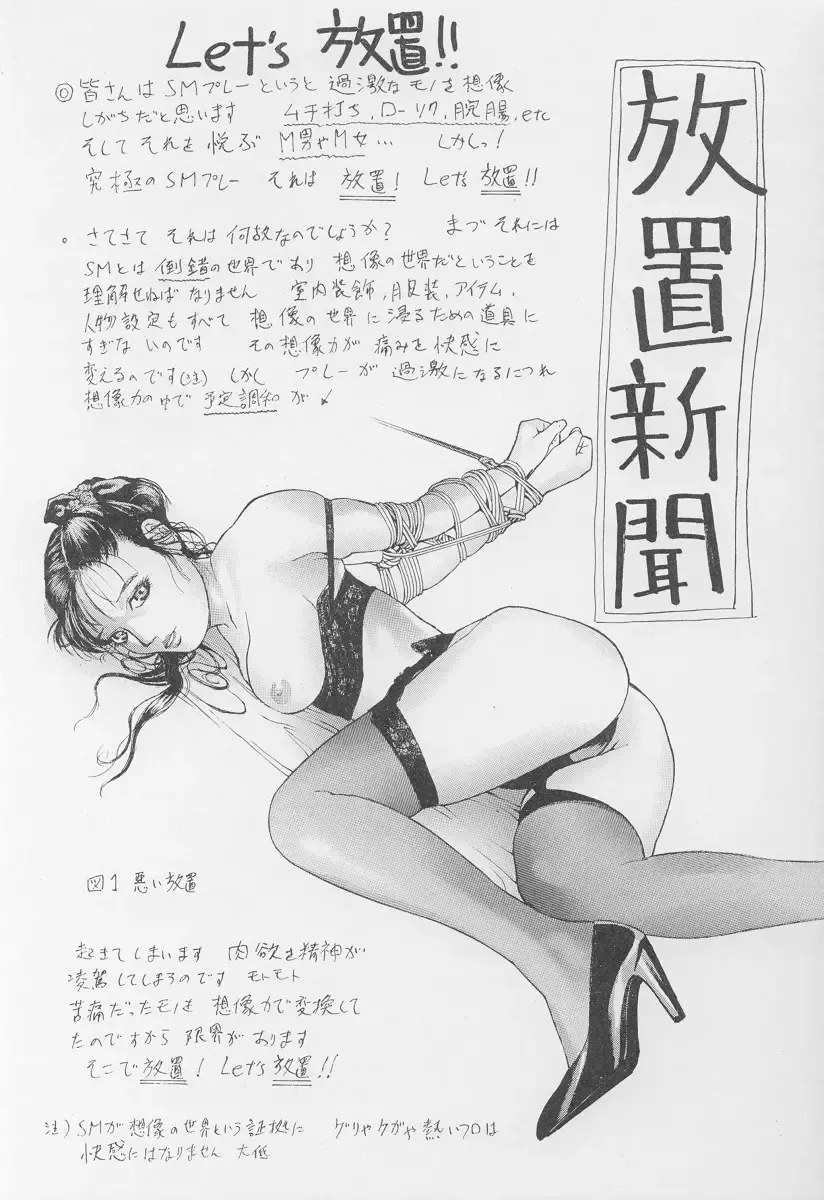 Let's 放置!!
放置新聞
◎皆さんは SMプレーというと 過激なモノを想像
しがちだと思います ムチ打ち,ローソク,脘腸,etc
そして それを 悦ぶ M男やM女… しかしっ!
究極のSMプレー それは 放置! Let's 放置!!
。さてさて それは 何故なのでしょうか? まづ それには
SMとは 倒錯の世界であり 想像の世界だということを
理解せねば なりません 室内装飾,服装,アイテム,
人物設定も すべて 想像の世界に浸るための道具に
すぎないのです その想像力が 痛みを快感に
変えるのです(注) しかし プレーが 過激になるにつれ
想像力の中で 予定調和が↙
図1 悪い放置
起きてしまいます 肉欲を精神が
凌駕してしまうのです モトモト
苦痛だったモノを 想像力で変換して
たのですから 限界があります
そこで 放置! Let's 放置!!
注)SMが想像の世界という証拠に ゲリやケガや熱いフロは
快感にはなりません 大低